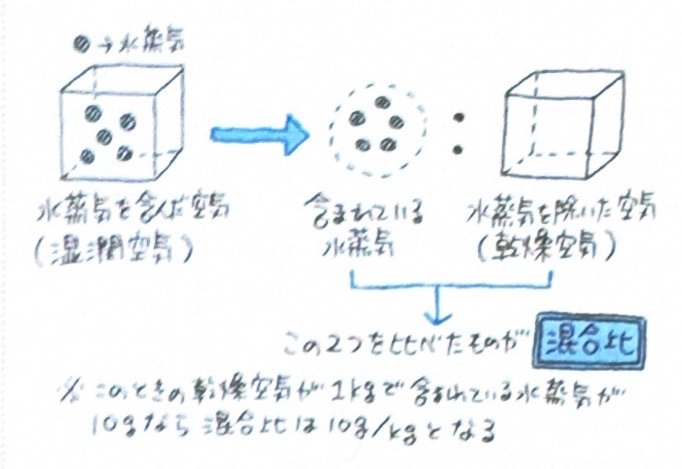 →水蒸気
水蒸気を含んだ空気
(湿潤空気)
含まれている
水蒸気
:
水蒸気を除いた空気
(乾燥空気)
この2つを比べたものが 混合比
※このときの乾燥空気が1kgで含まれている水蒸気が
10gなら混合比は10g/kgとなる